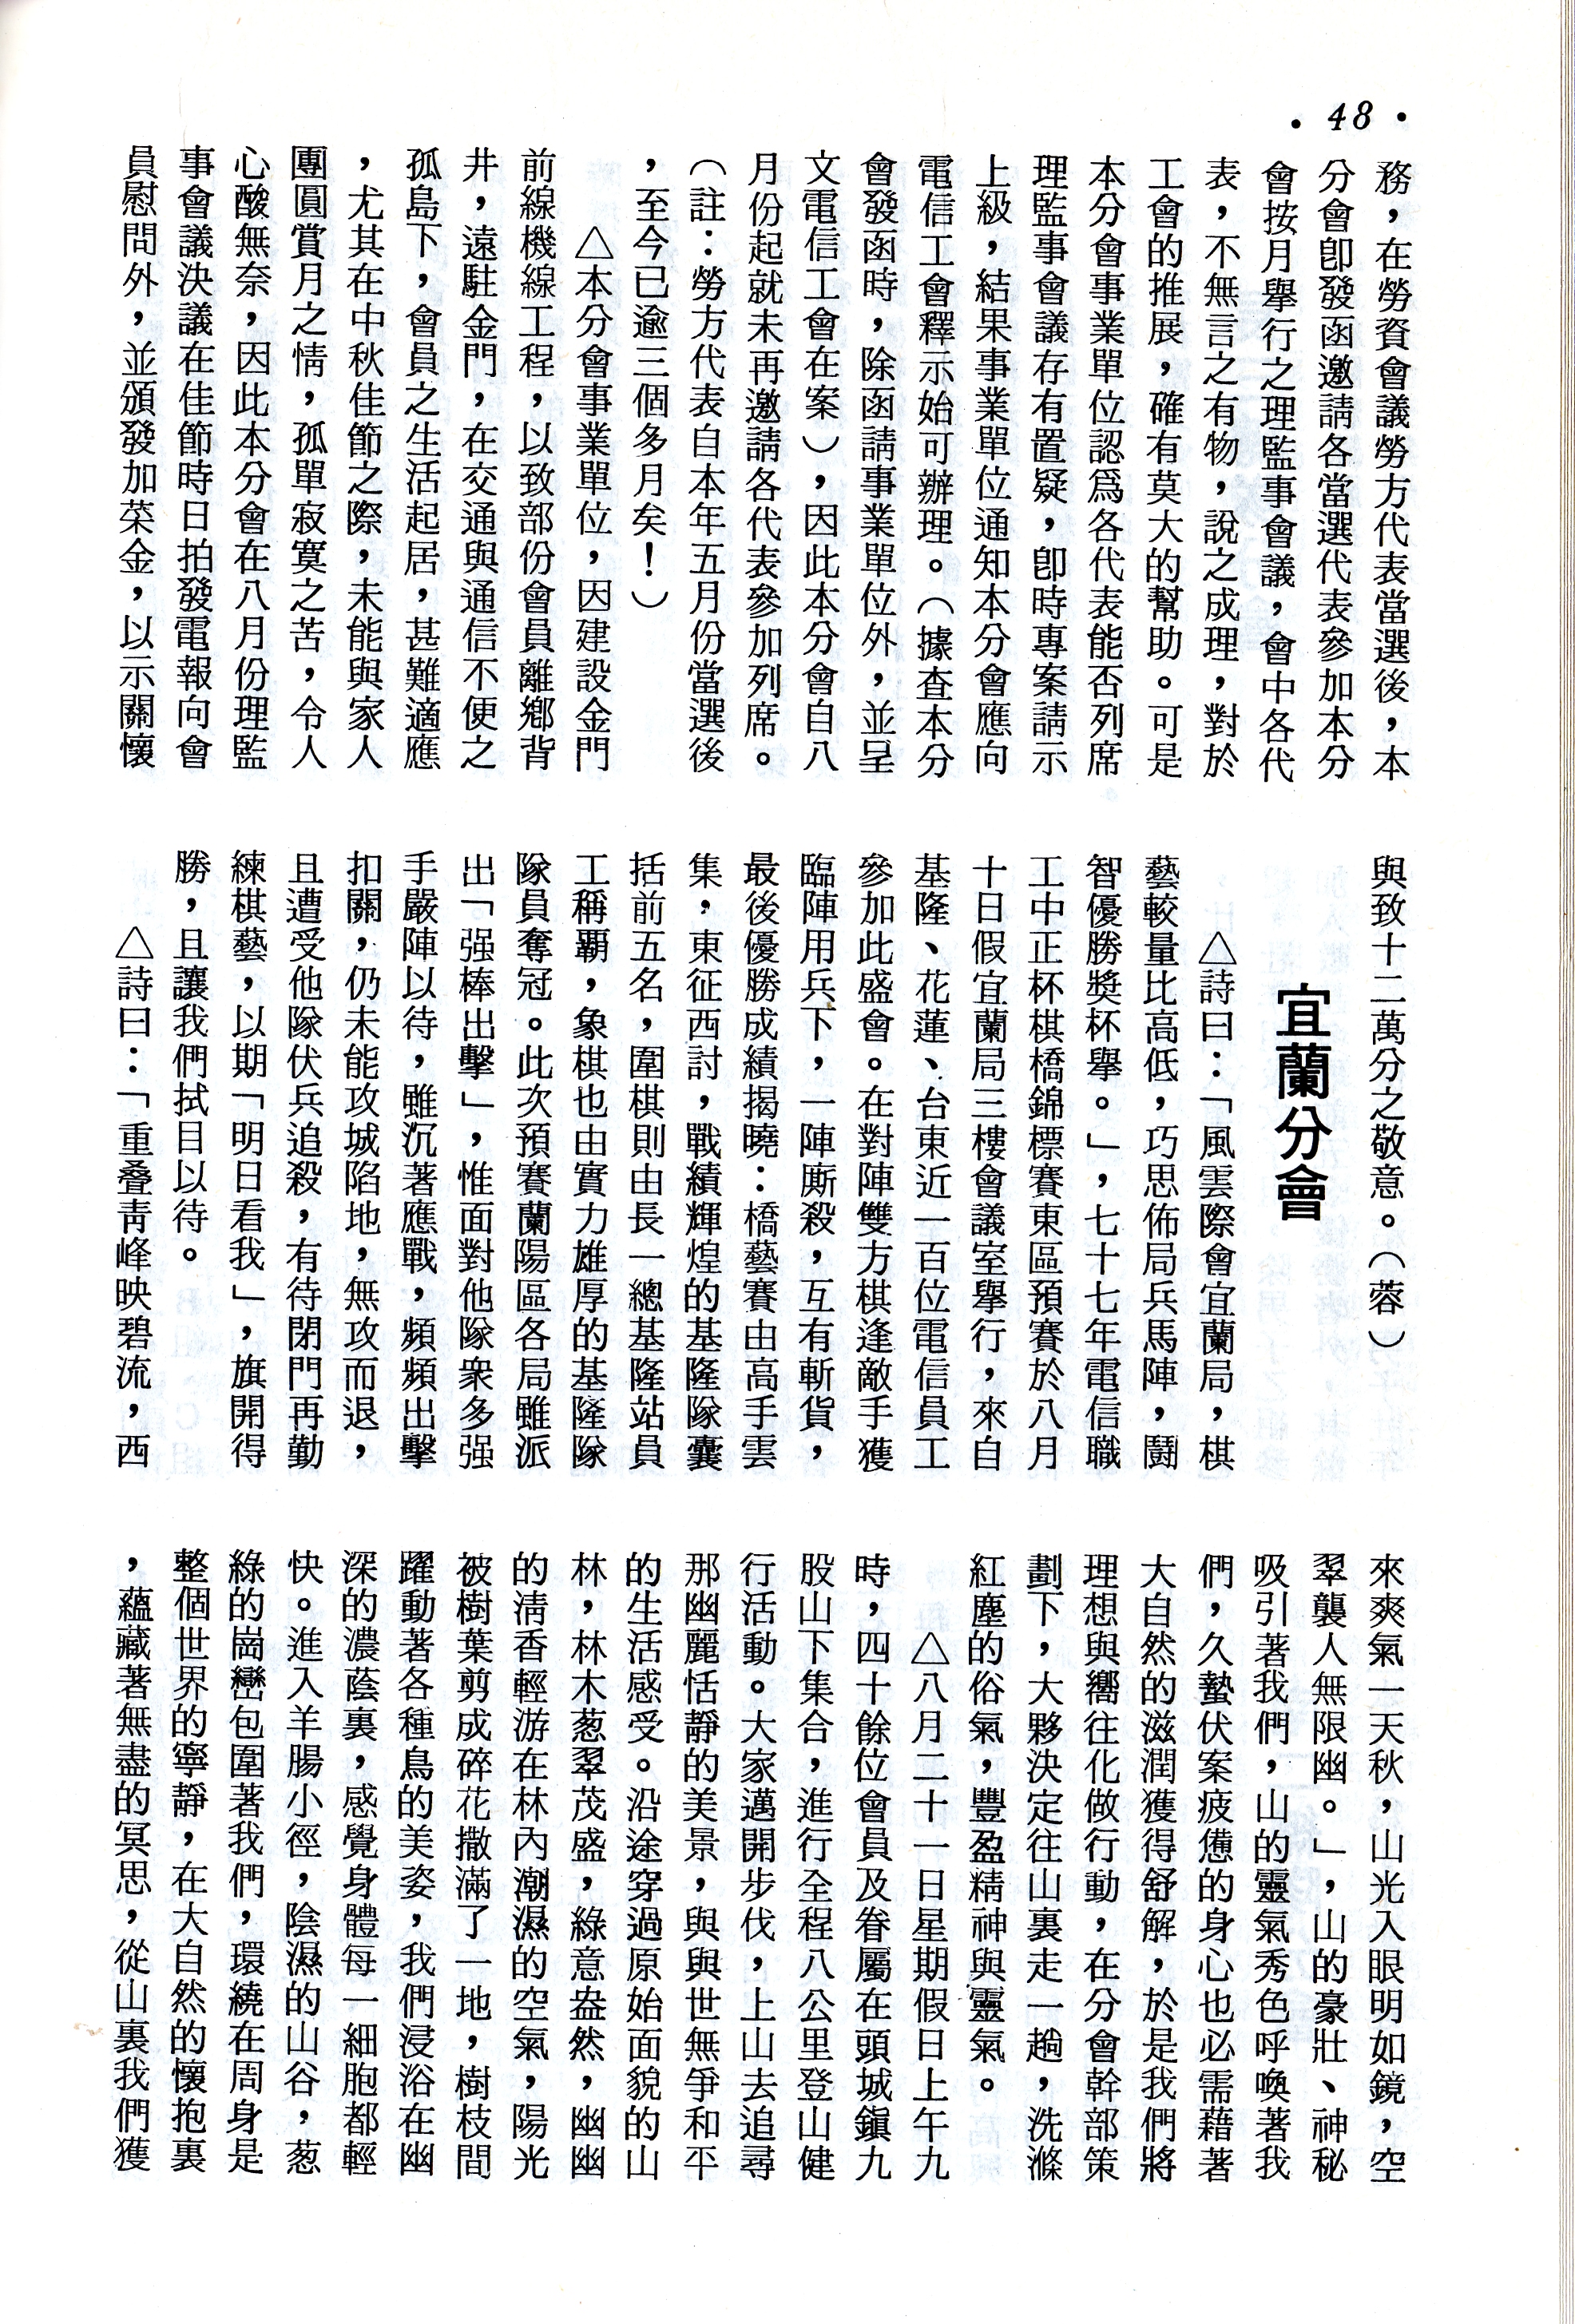 • 48 •
務，在勞資會議勞方代表當選後，本
分會卽發函邀請各當選代表參加本分
會按月舉行之理監事會議，會中各代
表，不無言之有物，說之成理，對於
工會的推展，確有莫大的幫助。可是
本分會事業單位認爲各代表能否列席
理監事會議存有置疑，卽時專案請示
上級，結果事業單位通知本分會應向
電信工會釋示始可辦理。（據查本分
會發函時，除函請事業單位外，並呈
文電信工會在案），因此本分會自八
月份起就未再邀請各代表參加列席。
（註：勞方代表自本年五月份當選後
，至今已逾三個多月矣！）
△本分會事業單位，因建設金門
前線機線工程，以致部份會員離鄉背
井，遠駐金門，在交通與通信不便之
孤島下，會員之生活起居，甚難適應
，尤其在中秋佳節之際，未能與家人
團圓賞月之情，孤單寂寞之苦，令人
心酸無奈，因此本分會在八月份理監
事會議決議在佳節時日拍發電報向會
員慰問外，並頒發加菜金，以示關懷
與致十二萬分之敬意。（蓉）
宜蘭分會
△詩曰：「風雲際會宜蘭局，棋
藝較量比高低，巧思佈局兵馬陣，鬪
智優勝獎杯舉。」，七十七年電信職
工中正杯棋橋錦標賽東區預賽於八月
十日假宜蘭局三樓會議室舉行，來自
基隆、花蓮、台東近一百位電信員工
參加此盛會。在對陣雙方棋逢敵手獲
臨陣用兵下，一陣廝殺，互有斬貨，
最後優勝成績揭曉：橋藝賽由高手雲
集，東征西討，戰績輝煌的基隆隊囊
括前五名，圍棋則由長一總基隆站員
工稱霸，象棋也由實力雄厚的基隆隊
隊員奪冠。此次預賽蘭陽區各局雖派
出「强棒出擊」，惟面對他隊衆多强
手嚴陣以待，雖沉著應戰，頻頻出擊
扣關，仍未能攻城陷地，無攻而退，
且遭受他隊伏兵追殺，有待閉門再勤
練棋藝，以期「明日看我」，旗開得
勝，且讓我們拭目以待。
△詩曰：「重叠靑峰映碧流，西
來爽氣一天秋，山光入眼明如鏡，空
翠襲人無限幽。」，山的豪壯、神秘
吸引著我們，山的靈氣秀色呼喚著我
們，久蟄伏案疲憊的身心也必需藉著
大自然的滋潤獲得舒解，於是我們將
理想與嚮往化做行動，在分會幹部策
劃下，大夥決定往山裏走一趟，洗滌
紅塵的俗氣，豐盈精神與靈氣。
△八月二十一日星期假日上午九
時，四十餘位會員及眷屬在頭城鎭九
股山下集合，進行全程八公里登山健
行活動。大家邁開步伐，上山去追尋
那幽麗恬靜的美景，與與世無爭和平
的生活感受。沿途穿過原始面貌的山
林，林木葱翠茂盛，綠意盎然，幽幽
的淸香輕游在林內潮濕的空氣，陽光
被樹葉剪成碎花撒滿了一地，樹枝間
躍動著各種鳥的美姿，我們浸浴在幽
深的濃蔭裏，感覺身體每一細胞都輕
快。進入羊腸小徑，陰濕的山谷，葱
綠的崗巒包圍著我們，環繞在周身是
整個世界的寧靜，在大自然的懷抱裏
，蘊藏著無盡的冥思，從山裏我們獲